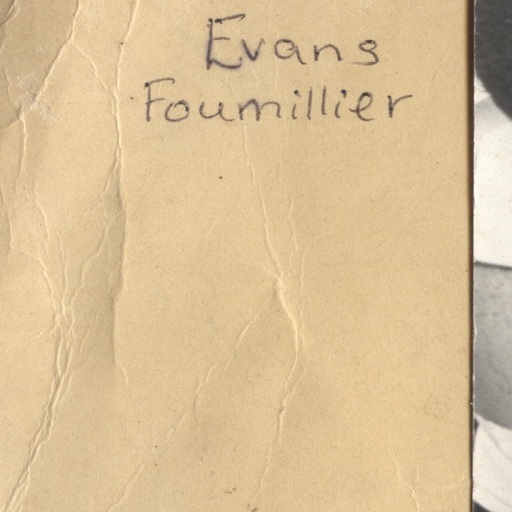 Evans
Foumillier